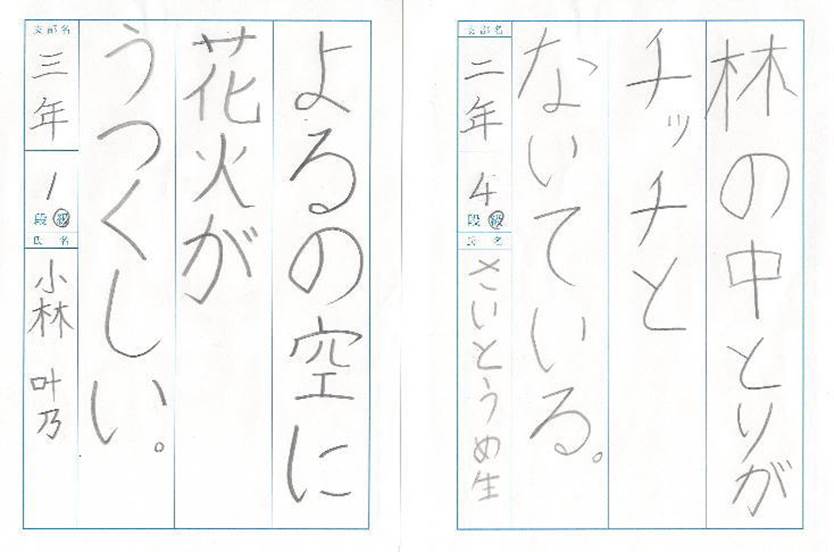 林の中とりが
チッチと
ないている。
支部名
二年
4
段級
氏名
さいとうめ生
よるの空に
花火が
うつくしい。
支部名
三年
1
段級
氏名
小林 叶乃